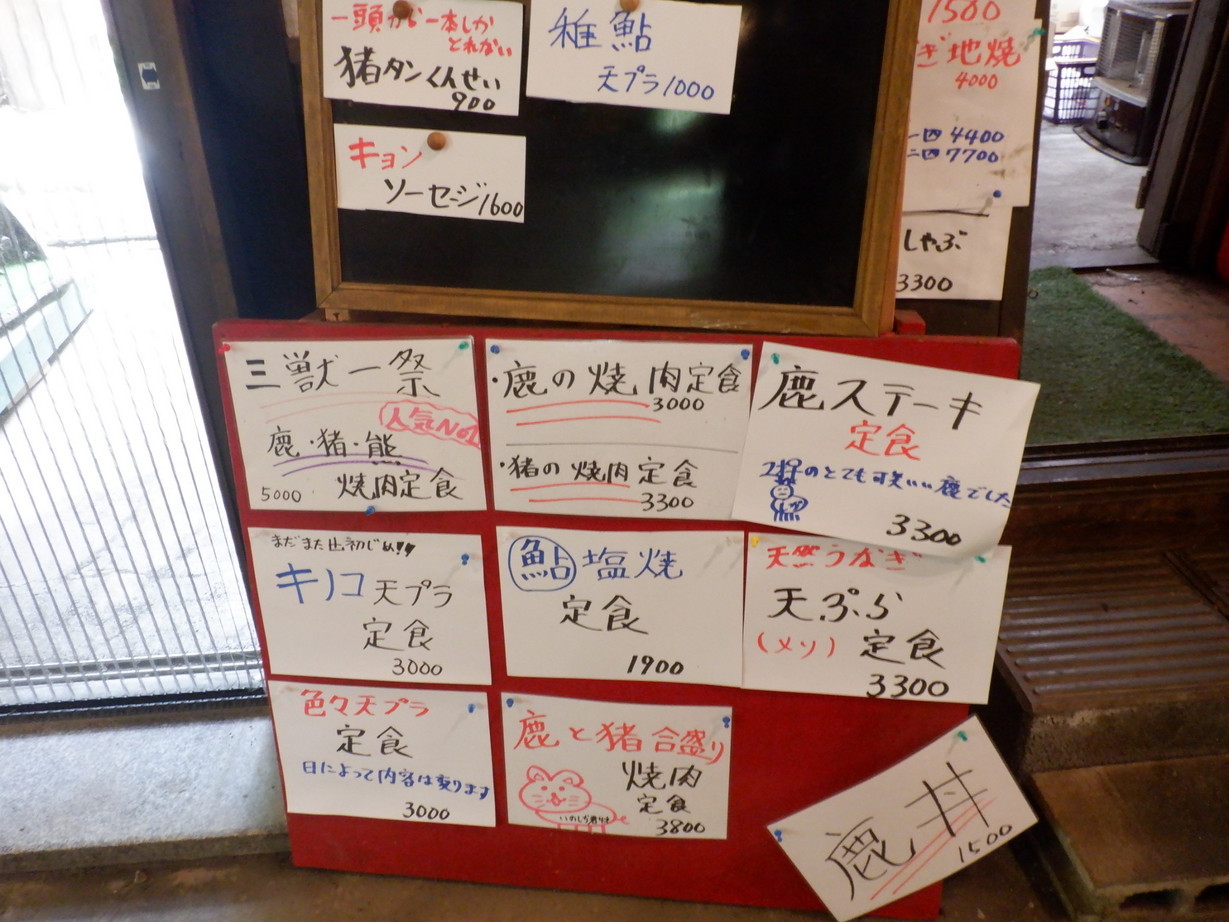 一頭から一本しか
とれない
猪タンくんせい
900
稚鮎
天プラ1000
キョン
ソーセージ1600
1500
ぎ地焼
4000
4400
7700
しゃぶ
3300
三獣一祭
人気No1
鹿・猪・熊
焼肉定食
5000
・鹿の焼肉定食
3000
・猪の焼肉定食
3300
鹿ステーキ
定食
のとても可笑いい鹿でした
3300
キノコ天プラ
定食
3000
鮎塩焼
定食
1900
天然うなぎ
天ぷら
(メソ)定食
3300
色々天プラ
定食
日によって内容は変ります
3000
鹿と猪合盛り
焼肉
定食
3800
鹿丼
1500